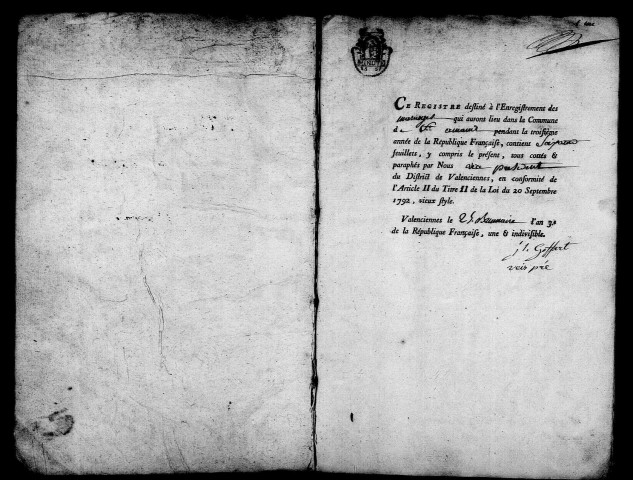 CE REGISTRE destiné à l'Enregistrement des
mariages qui auront lieu dans la Commune
de St. amand pendant la troisième
année de la République Française, contient
feuillets, y compris le présent, tous cotés &
paraphés par Nous vice président
du District de Valenciennes, en conformité de
l'Article II du Titre II de la Loi du 20 Septembre
1792, vieux style.
Valenciennes le 25 Brumaire l'an 3.e
de la République Française, une & indivisible.
j. l. Goffart
vice pré